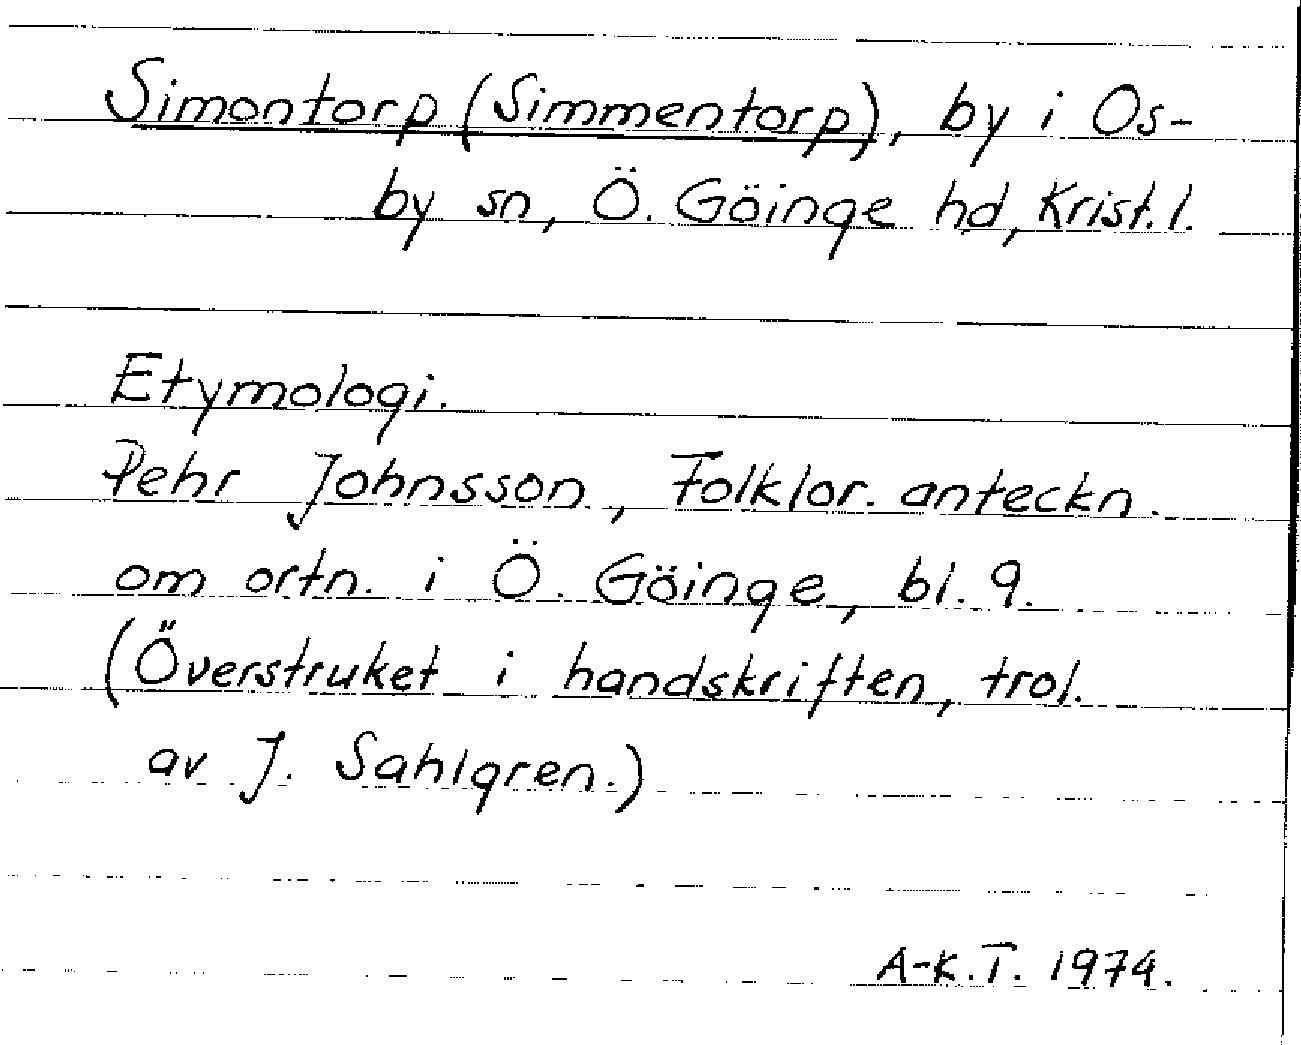 Simontorp (Simmentorp), by i Os-
by sn, Ö. Göinge hd, Krist. l.
Etymologi.
Pehr Johnsson, Folklor. anteckn.
om ortn. i Ö. Göinge, bl. 9.
(Överstruket i handskriften, trol.
av J. Sahlgren.)
A-K.T. 1974.